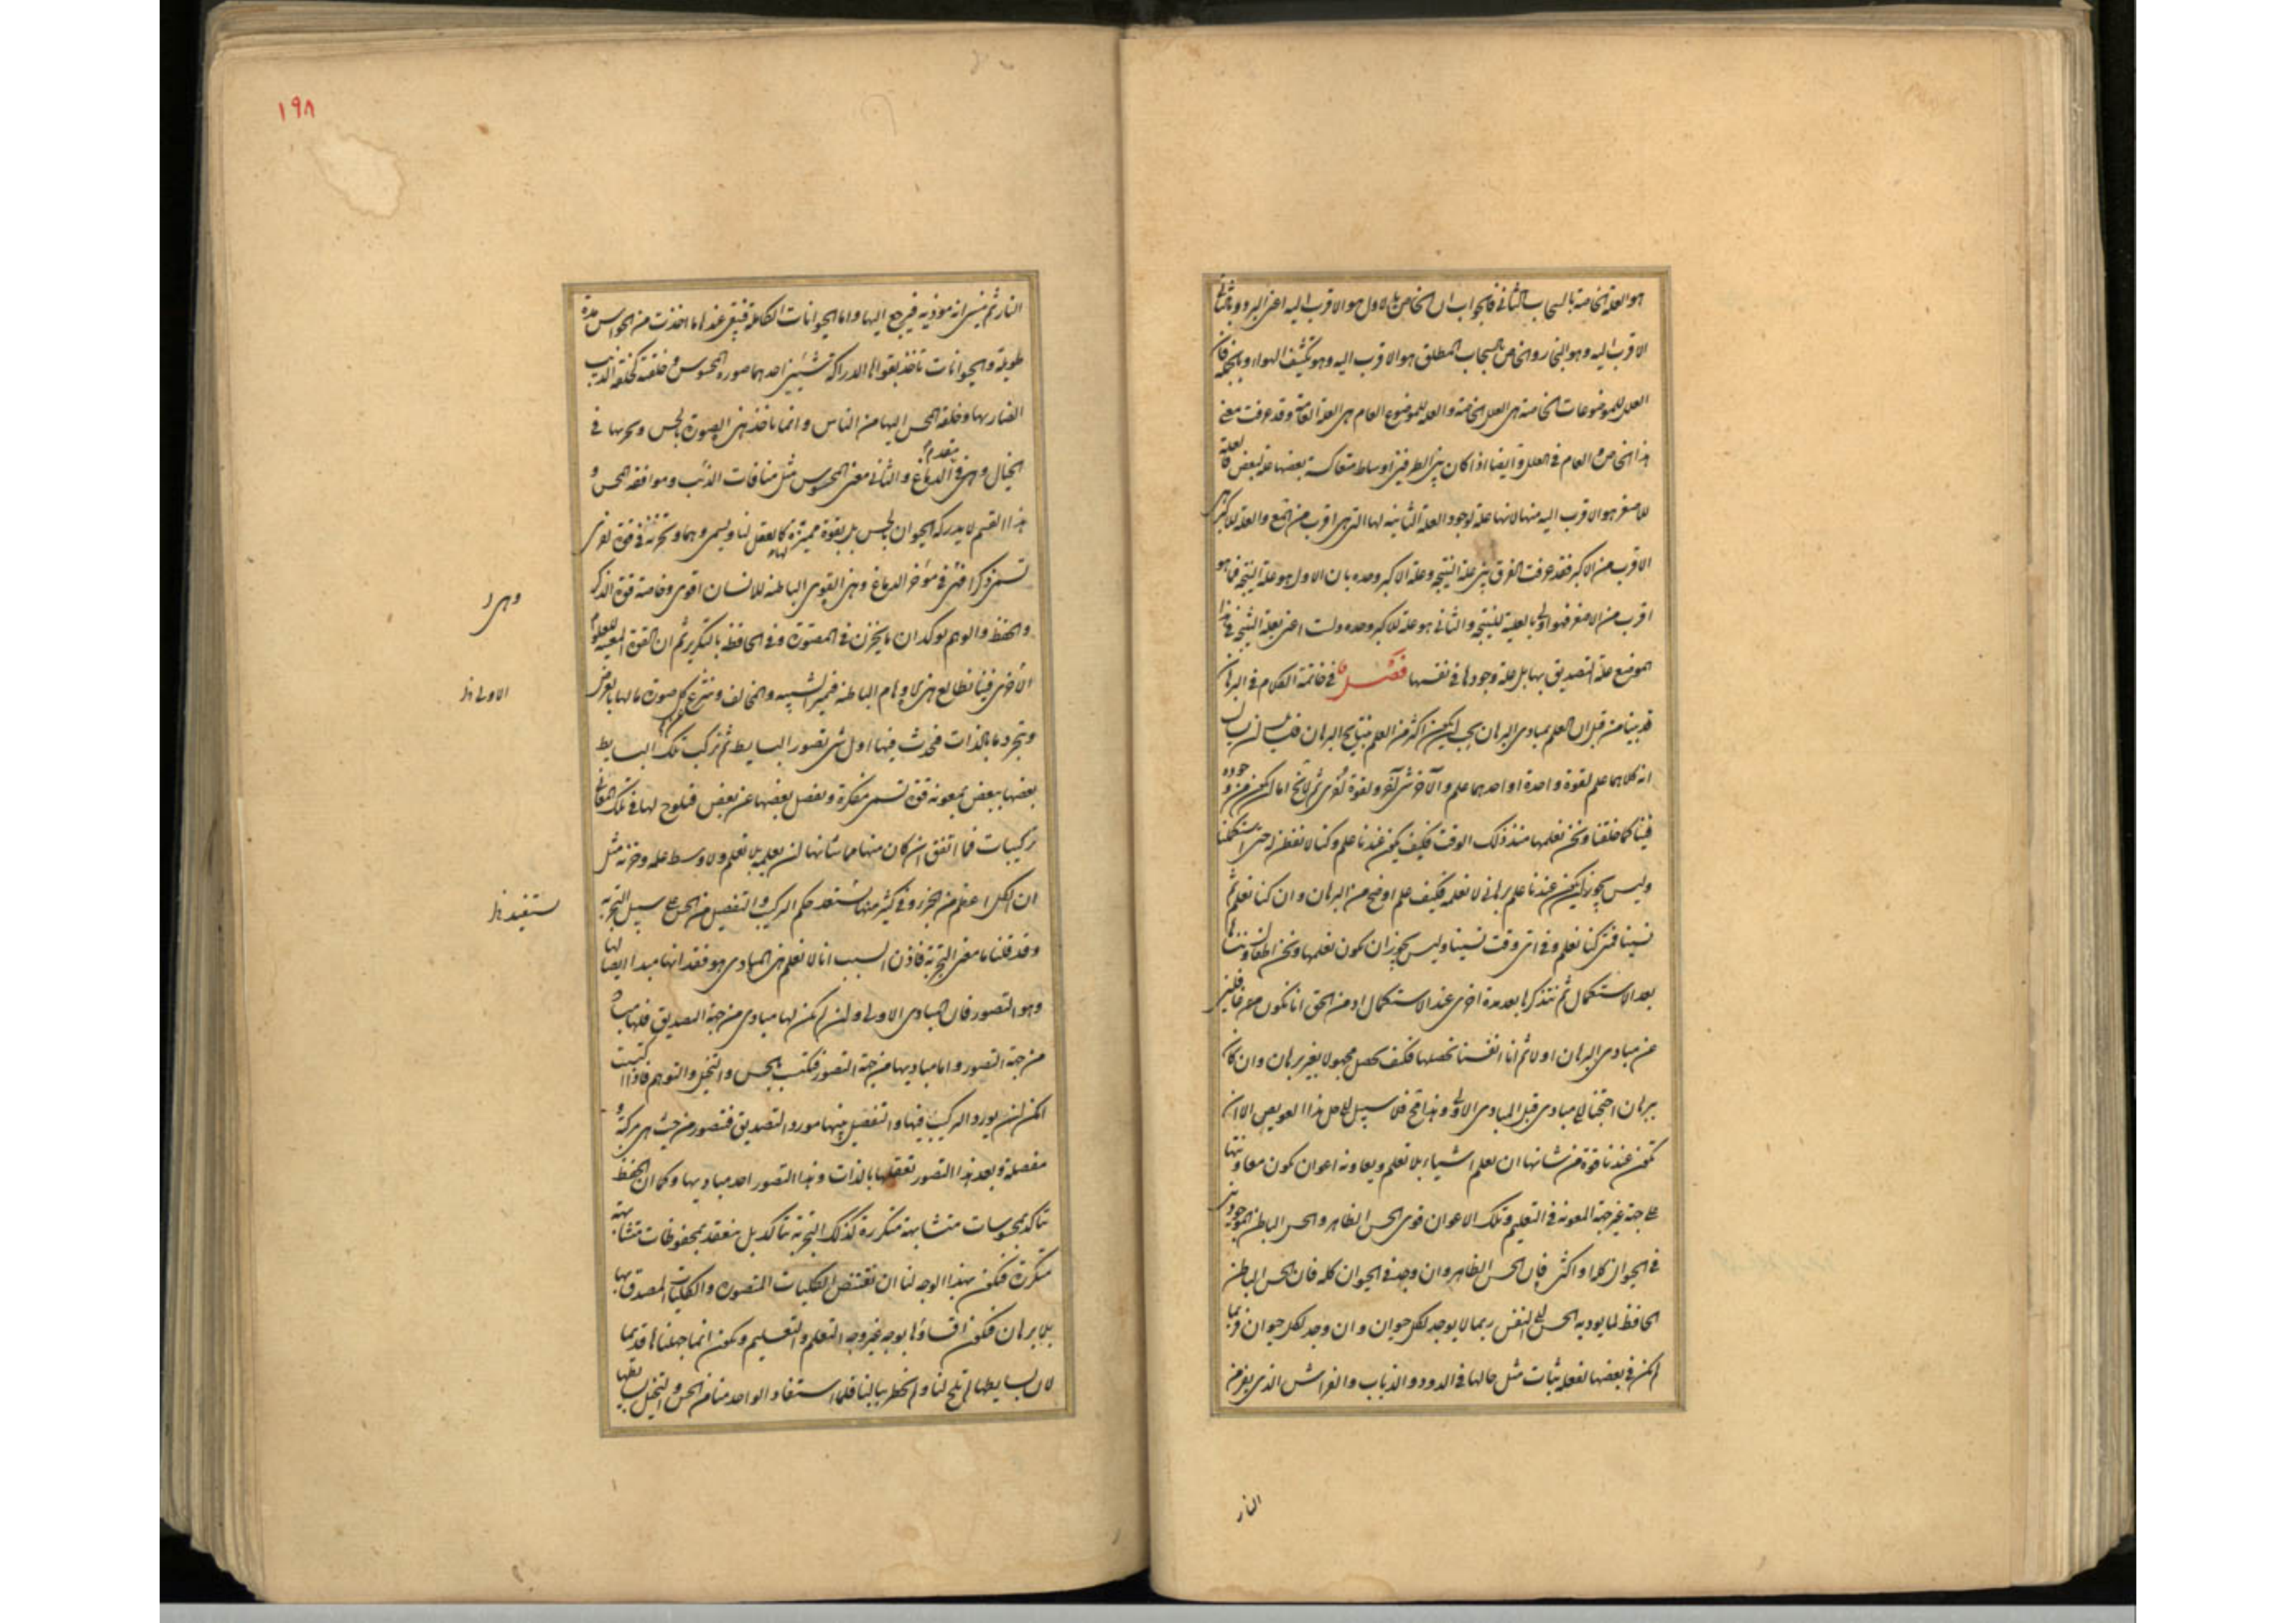 هو العلة الخاصة بالسحاب الثانى فالجواب ان الخاص بالاول هو الاقرب اليه اعنى البرد وبالثانى
الاقرب اليه وهو البخار والخاص بالسحاب المطلق هو الاقرب اليه وهو تكثف الهواء وبالجملة فان
العلل للموضوعات الخاصة هى العلل الخاصة والعلة للموضوع العام هى العلة العامة وقد عرفت معنى
هذا الخاص والعام فى العلل وايضا اذا كان بين الطرفين اوساط متعاكسة بعضها علة لبعض فالعلة
للاصغر هو الاقرب اليه منها لانها علة لوجود العلة الثانية لها التى هى اقرب من والعلة للاكبر هى
الاقرب من الاكبر فقد عرفت الفرق بين علة النتيجة وعلة الاكبر وحده بان الاول هو علة النتيجة فما هو
اقرب من الاصغر فهو اولى بالعلية للنتيجة والثانى هو علة للاكبر وحده ولست اعنى بعلة النتيجة فى هذا
الموضع علة التصديق بها بل علة وجودها فى نفسها فصل فى خاتمة الكلام فى البرهان
قد بينا من قبل ان العلم بمبادى البرهان يجب ان يكون اكثر من العلم بنتايج البرهان
انه كلاهما علم لقوة واحدة او احدهما علم والآخر شئ آخر ولقوة اخرى ثم لا يخ اما ان يكون موجوده
فينا كما خلقنا ونحن نعلمها منذ ذلك الوقت فكيف يكون عندنا علم وكنا لا نفطن له حتى استكملنا
وليس يجوز ان يكون عندنا علم برهانى لا نعلمه فكيف علم اوضح من البرهان وان كنا نعلم ثم
نسينا فمتى كنا نعلم وفى اى وقت نسينا وليس يجوز ان نكون نعلمها ونحن اطفال وننساها
بعد الاستكمال ثم نتذكرها بعد مدة اخرى عند الاستكمال اذ من الحق انا نكون
عن مبادى البرهان اولا ثم انا انفسنا نحصلها فكيف نحصل مجهولا بغير برهان وان كان
ببرهان احتجنا الى مبادى قبل المبادى الاولى وهذا مح فلا سبيل الى حل هذا العويص الا ان
تكون عندنا قوة من شانها ان تعلم اشياء بلا تعلم ويعاونه اعوان تكون معاونتها
على جهة غير جهة المعونة فى التعليم وتلك الاعوان قوى الحس الظاهر والحس الباطن الموجودتين
فى الحيوان كلها او اكثر فان الحس الظاهر وان وجد فى الحيوان كله فان الحس الباطن
الحافظ لما يوديه الحس الى النفس ربما لا يوجد لكل حيوان وان وجد لكل حيوان فربما
لم يكن فى بعضها لفعله ثبات مثل حالها فى الدود والذباب والفراش الذى يفر من
النار
١٩٨
النار ثم ينسى انه موذية فيرجع اليها واما الحيوانات الكاملة فيبقى عندها ما اخذت من الحواس مدة
طويلة والحيوانات تاخذ بقواها الدراكة شيئين احدهما صورة المحسوس وخلقته كخلقة الذئب
الضار بها وخلقة المحسن اليها من الناس وانما ناخذ هذه الصورة بالحس وتخزنها فى
الخيال وهى فى مقدم الدماغ والثانى معنى المحسوس مثل منافات الذئب وموافقة المحسن و
هذا القسم لا يدركه الحيوان بالحس بل بقوة مميزة لها كالعقل لنا ويسمى وهما وتخزنه فى قوة اخرى
تسمى ذكرا فهى فى مؤخر الدماغ وهذه القوى الباطنة للانسان اقوى وخاصة قوة الذكر
وهى
والحفظ والوهم يوكد ان ما يخزن فى المصورة وفى الحافظة بالتكرير ثم ان القوة المعينة للعلوم
الاولى فينا تطالع هذه الاوهام الباطنة فتميز الشبيه والمخالف وتنزع كل صورة ما لها بالعرض
الاولى
وتجرد ما بالذات فيحدث فيها اول شئ تصور البسايط ثم تركب تلك البسايط
بعضها ببعض بمعونة قوة تسمى مفكرة وتفصل بعضها عن بعض فيلوح لها فى تلك المعانى
تركيبات فما اتفق ان كان منها مما شانها ان تعلمه بلا تعلم ولا وسط علمه وخزنه مثل
ان الكل اعظم من الجزء وفى كثير منها حكم التركيب والتفصيل من الحس على سبيل التجربة
ستفيد
وقد قلنا ما معنى التجربة فاذن السبب انا لا نعلم هذه المبادى هو فقدانها مبدا ايضا لها
وهو التصور فان المبادى الاولى وان لم يكن لها مبادى من جهة التصديق فلها مباد
من جهة التصور واما مباديها من جهة التصور فتكتسب بالحس والتخيل والتوهم فاذا اكتسبت
امكن ان يورد التركيب فيها والتفصيل بينها مورد التصديق فتتصور من حيث هى مركبة و
مفصلة وبعد هذا التصور تعقلها بالذات وهذا التصور احد مباديها وكما ان الحفظ
يتاكد بمحسوسات متشابهة متكررة كذلك التجربة تتاكد بل تنعقد بمحفوظات متشابهة
متكررة فيكون بهذا الوجه لنا ان نقتنص الكليات المتصورة والكليات المصدق بها
بلا برهان فيكون اقتناؤها بوجه غير وجه التعلم والتعليم ويكون انما جهلناها قديما
لان بسايطها لم تلح لنا ولم تخطر ببالنا فلما استفاد الواحد منا من الحس والتخيل بسايطها